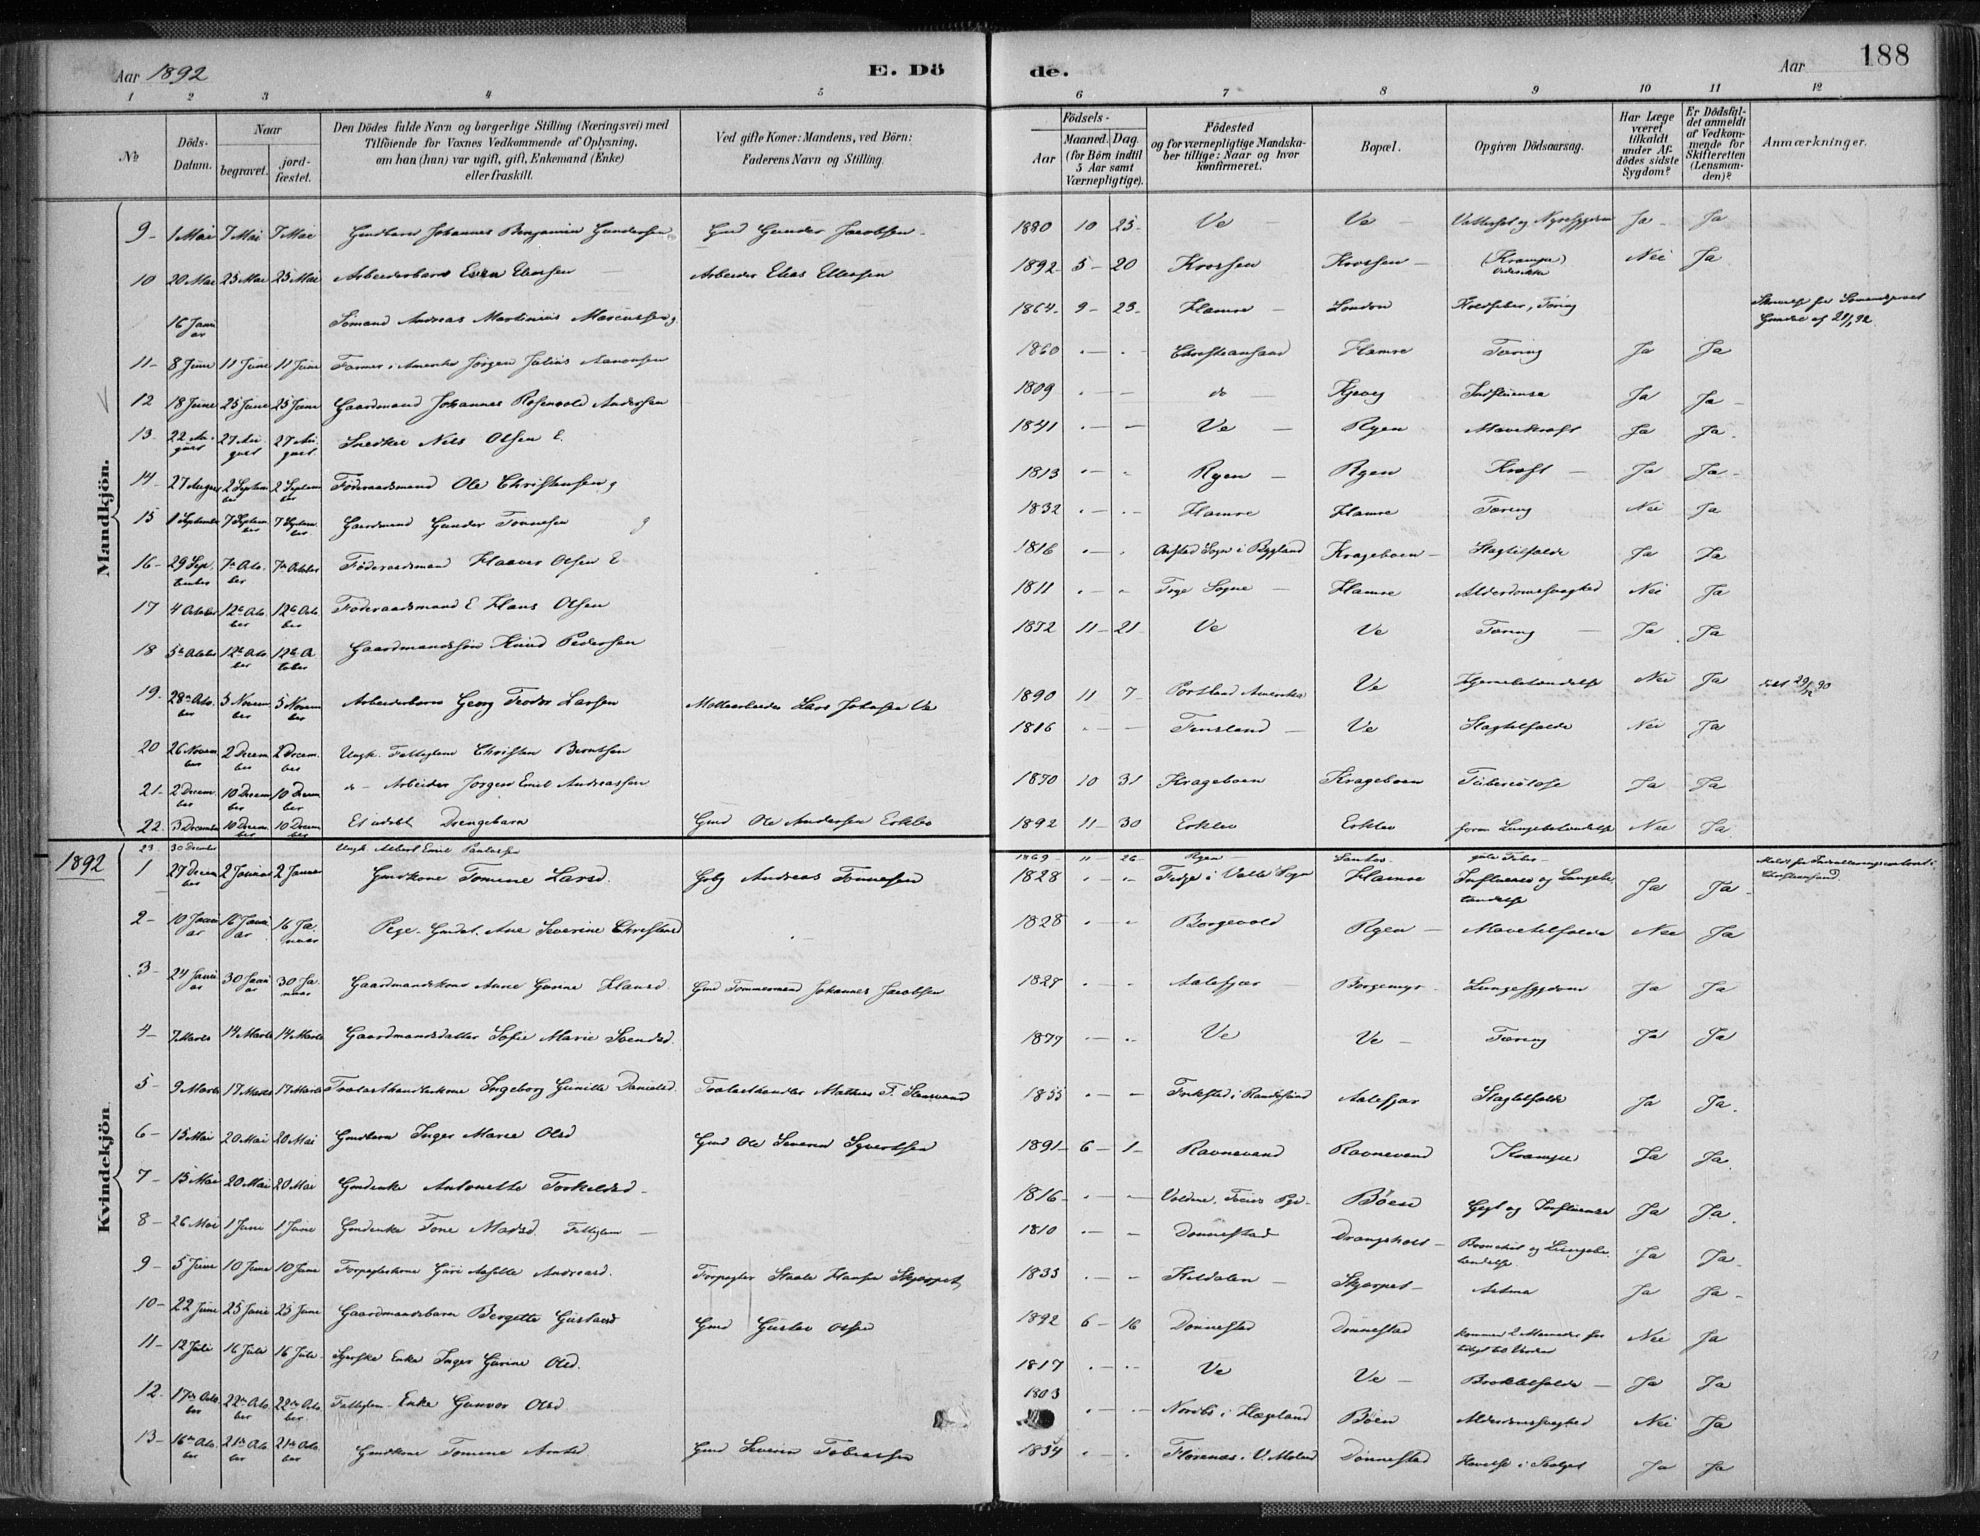 Aar 1892
E. Dö
de.
Aar
188
1 2 3 4 5 6 7 8 9 10 11 12
№
Döds-Datum.
Naar
begravet.
jord-fæstet.
Den Dödes fulde Navn og borgerlige Stilling (Næringsvei) med
Tilföiende for Voxnes Vedkommende af Oplysning,
om han (hun) var ugift, gift, Enkemand (Enke)
eller fraskilt.
Ved gifte Koner: Mandens, ved Börn:
Faderens Navn og Stilling.
Födsels-
Aar
Maaned. Dag.
(for Börn indtil
5 Aar samt
Værnepligtige).
Födested
og for værnepligtige Mandska-
ber tillige: Naar og hvor
konfirmeret.
Bopæl.
Opgiven Dödsaarsag.
Har Læge
været
tilkaldt
under Af-
dödes sidste
Sygdom?
Er Dödsfal-
det anmeldt
af Vedkom-
mende for
Skifteretten
(Lensman-
den)?
Anmærkninger.
Mandkjön.
9 - 1 Mai 7 Mai 7 Mai Gmdbarn Johannes Benjamin Gundersen Gmd Gunder Jacobsen 1880 10 25 Ve Ve og Nyresygdom Ja Ja
10 20 Mai 25 Mai 25 Mai Arbeiderbarn Even Eliassen Arbeider Elias Ellefsen 1892 5 - 20 Krossen Krossen (Krampe) Nei Ja
16 Januar Sömand Andreas Martinius Marcussen g 1864 9 - 23 Hamre London Tæring
11 - 8 Juni 11 Juni 11 Juni Farmer i Amerika Jørgen Julius Aanonsen 1860 Christiansand Hamre Tæring Ja Ja
12 18 Juni 25 Juni 25 Juni Gaardmand Johannes Rosenvold Andersen 1809 do Kjevig Influensa Ja Ja
13 - 22 August 27 August 27 August Snedker Nils Olsen E. 1841 Ve Ryen Mavekræft Ja Ja
14 - 27 August 2 September 2 September Föderaadsmand Ole Christensen g 1813 Ryen Ryen Kræft Ja Ja
15 1 September 7 September 7 September Gaardmand Gunder Tønnesen g 1832 Hamre Hamre Tæring Nei Ja
16 - 29 September 7de October 7de October Föderaadsmand Haaver Olsen E 1816 Sogn i Bygland Krageboen Slagtilfælde Ja Ja
17 4 October 12te October 12te October Föderaadsmand E Hans Olsen 1811 Sogne Hamre Alderdomssvaghed Nei Ja
18 5te October 12te October 12te October Gaardmandssøn Knud Pedersen 1872 11 - 21 Ve Ve Tæring Ja Ja
19 - 28de October 5 November 5 November Arbeiderbarn Georg Teodor Larsen Møllearbeider Lars Johnsen Ve 1890 11 7 Portland Amerika Ve Hjernebetændelse Nei Ja
20 26 November 2 December 2 December Ungk. Fattiglem Christen Berntsen 1816 Finsland Ve Slagtilfælde Nei Ja
21 - 2 December 10 December 10 December do - Arbeider Jørgen Emil Andreassen 1870 10 31 Krageboen Krageboen Tuberculose Ja Ja
22 - 3 December 10 December 10 December Et udøbt Drengebarn Gmd Ole Andersen Erklev 1892 11 - 30 Erklev Erklev Lungebetændelse Nei Ja
23 30 December Ungk. Albert Emil Paulssen 1869 11 26 Ryen Santos gule Feber
1892
Kvindekjön.
1 27 December 2 Januar 2 Januar Gmdkone Tomine Larsd. Andreas Tønnesen 1828 i Valle Sogn Hamre Influensa og Lungebetændelse Ja Ja
2 - 10 Januar 16 Januar 16 Januar Pige Ane Severine Christensd 1828 Borgevold Ryen Mavetilfælde Nei Ja
3 - 24 Januar 30 Januar 30 Januar Gaardmandskone Anne Gurine Hansd. Gmd Tømmermand Johannes Jacobsen Aalefjær Borgemyr Lungesygdom Ja Ja
4 - 7 Marts 14 Marts 14 Marts Gaardmandsdatter Sofie Marie Svendsd. 1877 Ve Ve Tæring Ja Ja
5 - 9 Marts 17 Marts 17 Marts Trælasthandlerkone Ingeborg Gunille Danielsd. Trælasthandler Mathias T. 1855 i Randøsund Aalefjær Slagtilfælde Ja Ja
6 - 15 Mai 20 Mai 20 Mai Gmdbarn Inger Marie Olsd Gmd Ole Severin Syvertsen 1891 6 - 1 Ravnevand Ravnevand Krampe Ja Ja
7 - 15 Mai 20 Mai 20 Mai Gmdenke Antonette Torkelsd 1816 Böen Gigt og Influensa Ja Ja
8 - 26 Mai 1 Juni 1 Juni Gmdenke Tone Madsd. Fattiglem 1810 Dønnestad Drangsholt Bronchit og Lungebetændelse Ja Ja
9 - 5 Juni 10 Juni 10 Juni Forpagterkone Guri Andreasd. Forpagter Staale Hansen Skjerpet 1833 Kildalen Skjerpet Astma Ja Ja
10 - 22 Juni 25 Juni 25 Juni Gaardmandsbarn Bergette Gustavsd Gmd Gustav Olsen 1892 6 - 16 Dønnestad Dønnestad kommen 2 Maaneder for tidligt til Verden Nei Ja
11 - 12 Juli 16 Juli 16 Juli Enke Inger Gurine Olsd. 1817 Ve Ve Ja Ja
12 - 17de October 22de October 22de October Fattiglem Enke Gunvor Olsd 1803 i Hægeland Böen Alderdomssvaghed Nei Ja
13 - 16de October 21de October 21de October Gmdkone Tomine Arntsd Gmd Severin Tobiassen 1834 i V. Moland Dønnestad Hævelse i Svælget Ja Ja